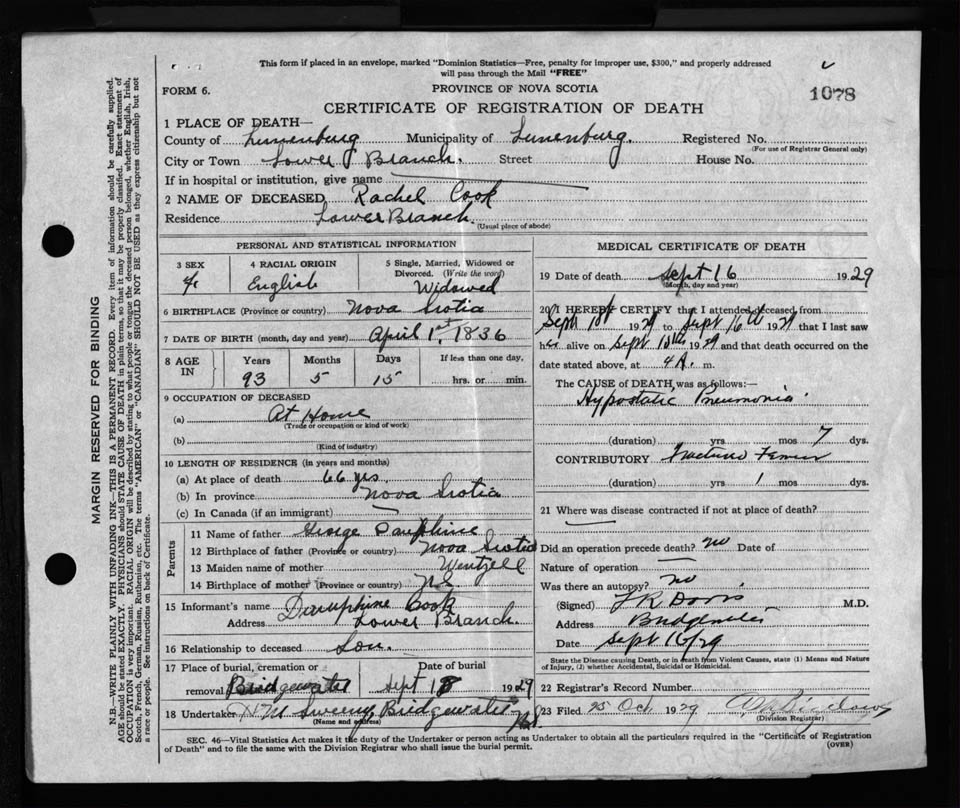 This form if placed in an envelope, marked "Dominion Statistics—Free, penalty for improper use, $300," and properly addressed
will pass through the Mail "FREE"
FORM 6.
PROVINCE OF NOVA SCOTIA
1078
CERTIFICATE OF REGISTRATION OF DEATH
1 PLACE OF DEATH—
County of Lunenburg Municipality of Lunenburg. Registered No.
(For use of Registrar General only)
City or Town Lower Branch. Street House No.
If in hospital or institution, give name
2 NAME OF DECEASED Rachel Cook
Residence Lower Branch.
(Usual place of abode)
PERSONAL AND STATISTICAL INFORMATION
3 SEX
F.
4 RACIAL ORIGIN
English
5 Single, Married, Widowed or
Divorced. (Write the word)
Widowed
6 BIRTHPLACE (Province or country) Nova Scotia
7 DATE OF BIRTH (month, day and year) April 1st, 1836
8 AGE IN
Years Months Days If less than one day,
93 5 15 hrs. or min.
9 OCCUPATION OF DECEASED
(a) At Home
(Trade or occupation or kind of work)
(b)
(Kind of industry)
10 LENGTH OF RESIDENCE (in years and months)
(a) At place of death 66 yrs.
(b) In province Nova Scotia
(c) In Canada (if an immigrant)
Parents
11 Name of father George Dauphine
12 Birthplace of father (Province or country) Nova Scotia
13 Maiden name of mother Wentzell
14 Birthplace of mother (Province or country) N.S.
15 Informant's name Dauphine Cook
Address Lower Branch.
16 Relationship to deceased Son.
17 Place of burial, cremation or Date of burial
removal Bridgewater Sept 18 1929
18 Undertaker H M Sweeny, Bridgewater, NS
(Name and address)
MEDICAL CERTIFICATE OF DEATH
19 Date of death Sept 16 1929
(Month, day and year)
20 I HEREBY CERTIFY that I attended deceased from
Sept 1929 to Sept 16th 1929 that I last saw
her alive on Sept 15th 1929 and that death occurred on the
date stated above, at 4 A. m.
The CAUSE of DEATH was as follows:—
Hypostatic Pneumonia.
(duration) yrs mos 7 dys.
CONTRIBUTORY Fractured Femur
(duration) yrs 1 mos dys.
21 Where was disease contracted if not at place of death?
Did an operation precede death? no Date of
Nature of operation
Was there an autopsy? no
(Signed) M.D.
Address Bridgewater
Date Sept 16/29
State the Disease causing Death, or in death from Violent Causes, state (1) Means and Nature
of Injury, (2) whether Accidental, Suicidal or Homicidal.
22 Registrar's Record Number
23 Filed 25 Oct 1929
(Division Registrar)
SEC. 46—Vital Statistics Act makes it the duty of the Undertaker or person acting as Undertaker to obtain all the particulars required in the "Certificate of Registration
of Death" and to file the same with the Division Registrar who shall issue the burial permit.
(OVER)
MARGIN RESERVED FOR BINDING
N.B.—WRITE PLAINLY WITH UNFADING INK—THIS IS A PERMANENT RECORD. Every item of information should be carefully supplied.
AGE should be stated EXACTLY. PHYSICIANS should STATE CAUSE OF DEATH in plain terms, so that it may be properly classified. Exact statement of
OCCUPATION is very important. RACIAL ORIGIN will be described by stating to what people or tongue the deceased person belonged, whether English, Irish,
Scotch, French, German, Russian, Ruthenian, etc. The terms "AMERICAN" or "CANADIAN" SHOULD NOT BE USED as they express citizenship but not
a race or people. See instructions on back of Certificate.